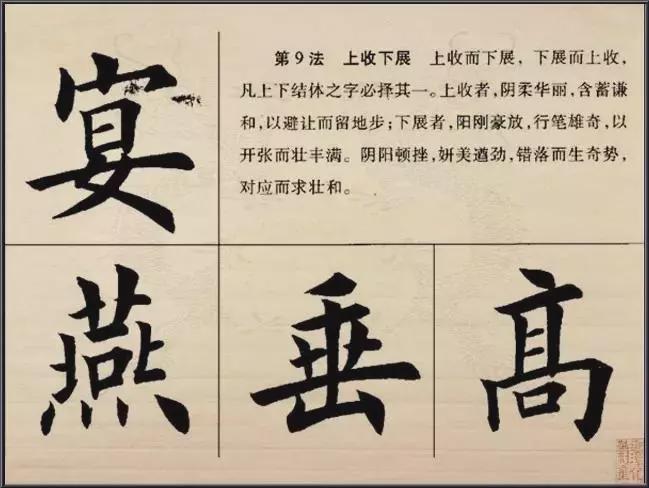 宴
第9法 上收下展 上收而下展，下展而上收，
凡上下结体之字必择其一。上收者，阴柔华丽，含蓄谦
和，以避让而留地步；下展者，阳刚豪放，行笔雄奇，以
开张而壮丰满。阴阳顿挫，妍美遒劲，错落而生奇势，
对应而求壮和。
燕 垂 高